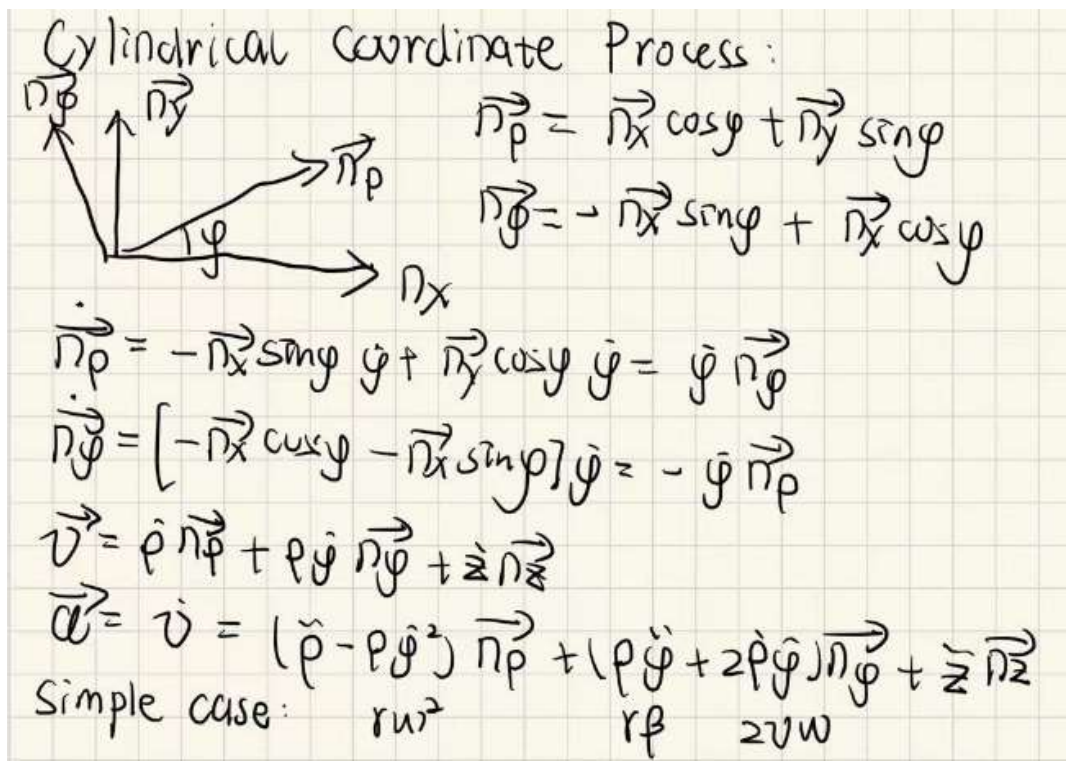 Cylindrical Coordinate Process:
n⃗φ n⃗y n⃗ρ φ nx
n⃗ρ = n⃗x cosφ + n⃗y sinφ
n⃗φ = - n⃗x sinφ + n⃗x cosφ
n⃗̇ρ = -n⃗x sinφ φ̇ + n⃗y cosφ φ̇ = φ̇ n⃗φ
n⃗̇φ = [-n⃗x cosφ - n⃗x sinφ]φ̇ = - φ̇ n⃗ρ
v⃗ = ρ̇ n⃗ρ + ρφ̇ n⃗φ + ż n⃗z
a⃗ = v̇ = (ρ̈ - ρφ̇²) n⃗ρ + (ρφ̈ + 2ρ̇φ̇) n⃗φ + z̈ n⃗z
Simple case: rω² rβ 2vω